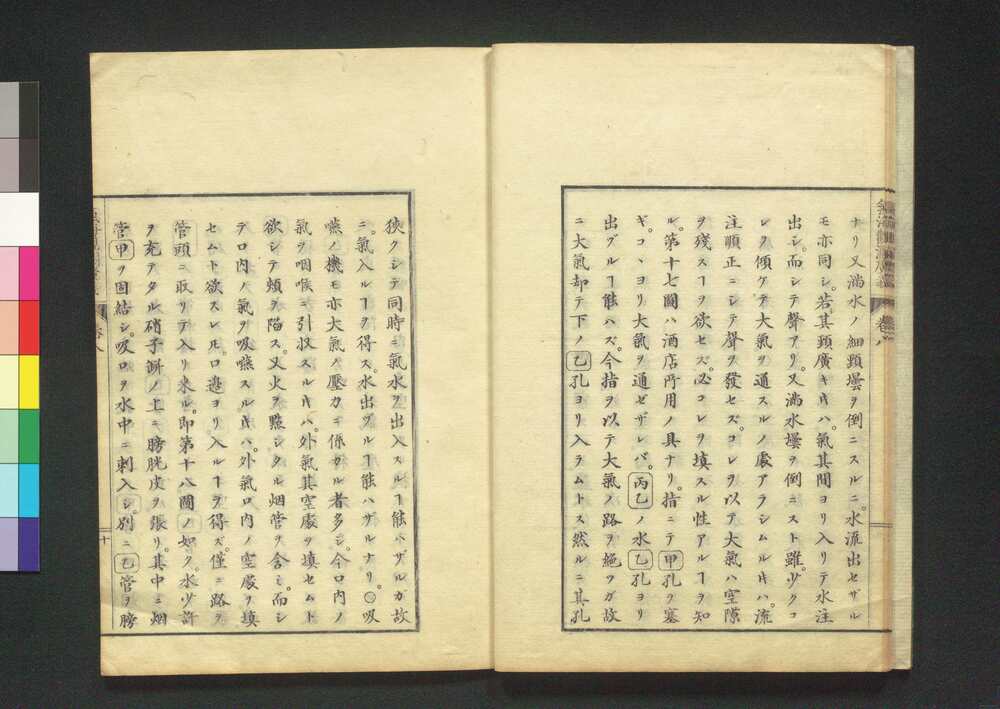 ナリ又満水ノ細頸壜ヲ倒ニスルニ。水流出セザル
モ亦同シ。若其頸廣キ𪜈ハ。氣其間ヨリ入リテ水注
出シ。而シテ聲アリ。又満水壜ヲ倒ニスト雖。少クコ
レヲ傾ケテ大氣ヲ通スルノ處アラシムル𪜈ハ。流
注順正ニシテ聲ヲ發セズ。コレヲ以テ大氣ハ空隙
ヲ残スヿヲ欲セズ。必コレヲ填スル性アルヿヲ知
ル。第十七圖ハ酒店所用ノ具ナリ。指ニテ甲孔ヲ塞
ギ。コヽヨリ大氣ヲ通ゼザレバ。丙乙ノ水乙孔ヨリ
出グルヿ能ハズ。今指ヲ以テ大氣ノ路ヲ絕ツガ故
ニ大氣却テ下ノ乙孔ヨリ入ラムトス然ルニ其孔
狹クシテ同時ニ氣水ヲ出入スルヿ能ハザルガ故
ニ。氣入ルヿヲ得ス。水出グルヿ能ハザルナリ。○吸
嚥ノ機モ亦大氣ノ壓力ニ係カル者多シ。今口内ノ
氣ヲ咽喉ニ引収スル𪜈ハ。外氣其空處ヲ填セムト
欲シテ頬ヲ陷ス。又火ヲ點シタル烟管ヲ含ミ。而シ
テ口内ノ氣ヲ吸嚥スル𪜈ハ。外氣口内ノ空處ヲ填
セムト欲スレ𪜈。口邊ヨリ入ルヿヲ得ズ。僅ニ路ヲ
管頭ニ取リテ入リ來ル。即第十八圖ノ如ク。水少許
ヲ充テタル硝子瓶ノ上ニ膀胱皮ヲ張リ。其中ニ烟
管甲ヲ固結シ。吸口ヲ水中ニ刺入シ。別ニ乙管ヲ膀
卷八
十